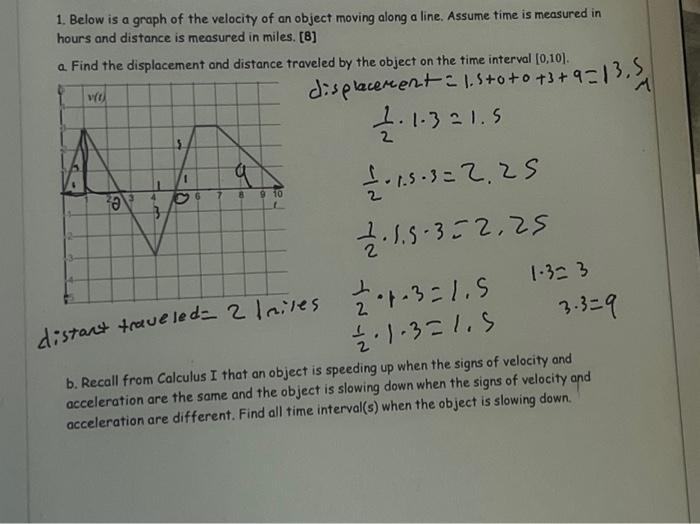 1. Below is a graph of the velocity of an object moving along a line. Assume time is measured in
hours and distance is measured in miles. [8]
a. Find the displacement and distance traveled by the object on the time interval [0,10].
displacement = 1.5+0+0+3+9=13.5
v(t)
1/2 · 1·3 = 1.5
1/2 · 1.5 · 3 = 2.25
1/2 · 1.5 · 3 = 2.25
1/2 · 1 · 3 = 1.5
1·3 = 3
1/2 · 1 · 3 = 1.5
3·3=9
9
3
4
6
7
8
9
10
distant traveled= 21 miles
b. Recall from Calculus I that an object is speeding up when the signs of velocity and
acceleration are the same and the object is slowing down when the signs of velocity and
acceleration are different. Find all time interval(s) when the object is slowing down.